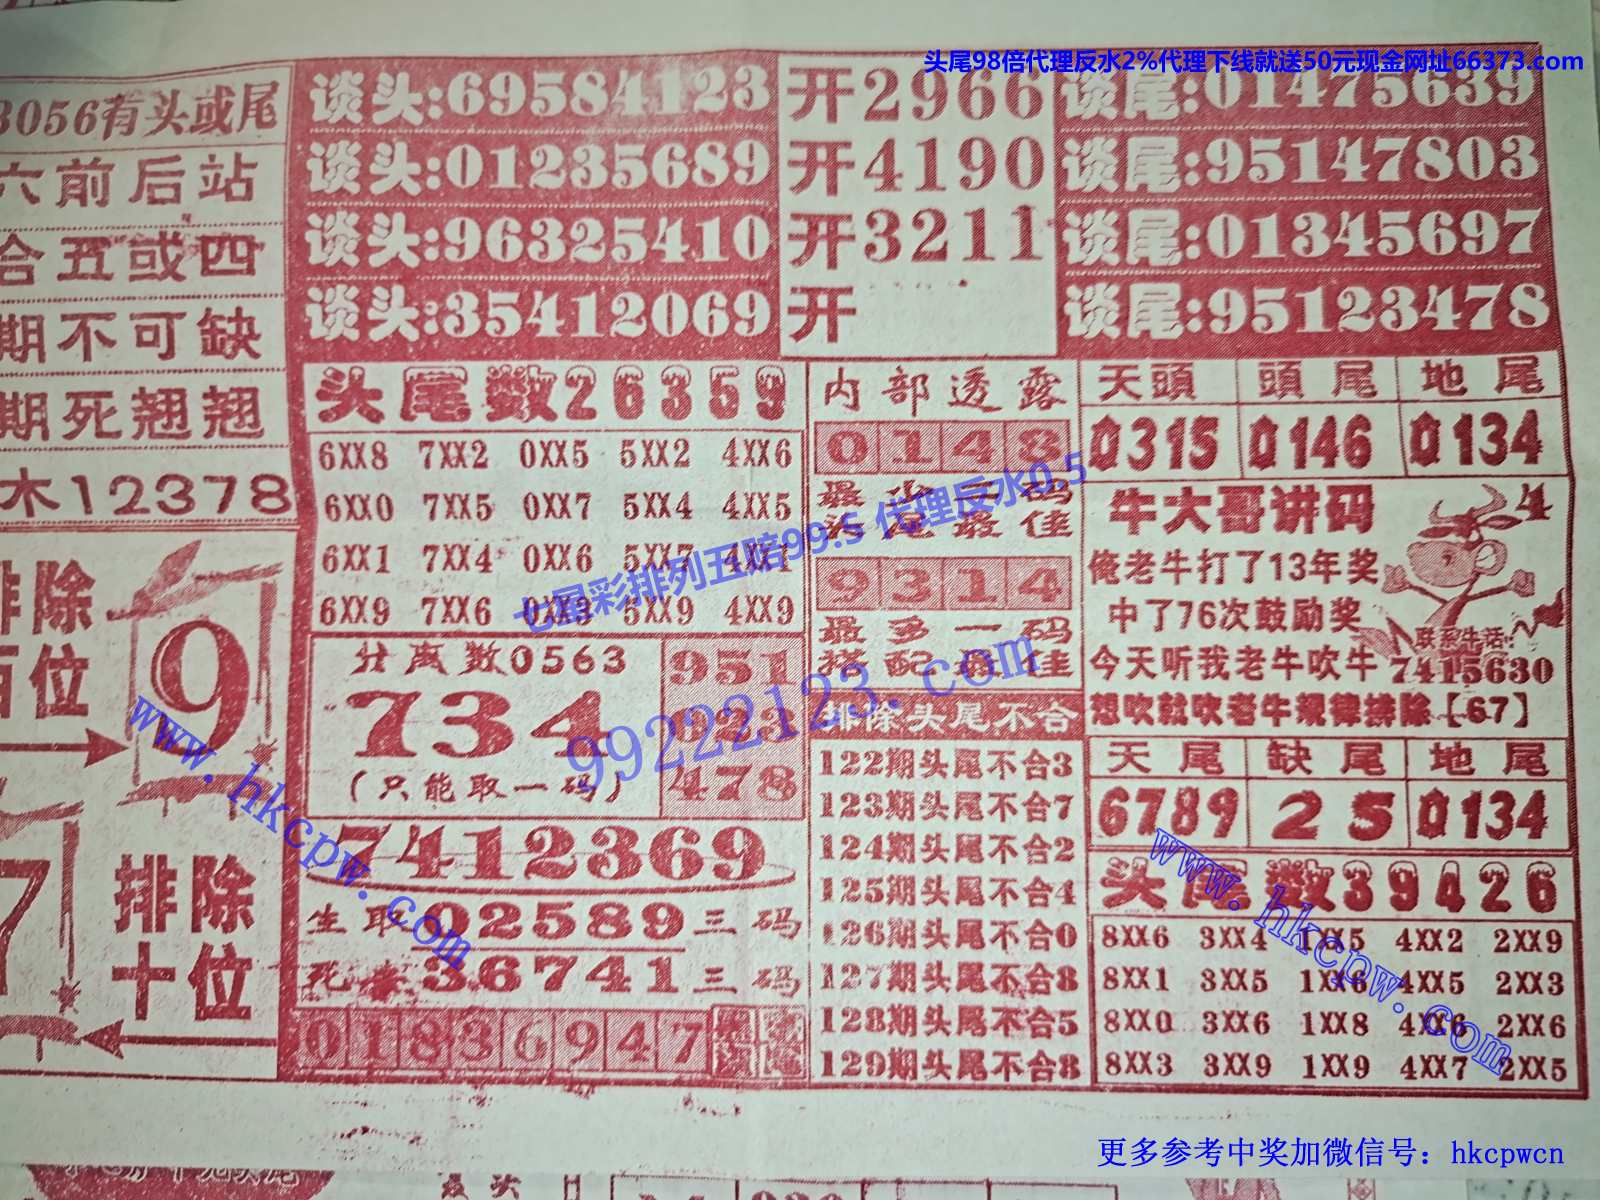 头尾98倍代理反水2%代理下线就送50元现金网址66373.com
3056有头或尾
六前后站
合五或四
期不可缺
期死翘翘
木12378
谈头:69584123 开2966 谈尾:01475639
谈头:01235689 开4190 谈尾:95147803
谈头:96325410 开3211 谈尾:01345697
谈头:35412069 开 谈尾:95123478
排除
百位
9
7
排除
十位
头尾数26359
6XX8 7XX2 0XX5 5XX2 4XX6
6XX0 7XX5 0XX7 5XX4 4XX5
6XX1 7XX4 0XX6 5XX7 4XX1
6XX9 7XX6 0XX9 5XX9 4XX9
分离数0563
734
(只能取一码)
951
623
478
7412369
生取02589三码
死禁36741三码
01836947
内部透露
0148
最少二码
头尾最佳
9314
最多一码
搭配最佳
排除头尾不合
122期头尾不合3
123期头尾不合7
124期头尾不合2
125期头尾不合4
126期头尾不合0
127期头尾不合8
128期头尾不合5
129期头尾不合8
天頭 頭尾 地尾
0315 0146 0134
牛大哥讲码
4
俺老牛打了13年奖
中了76次鼓励奖
今天听我老牛吹牛
联系生活:
7415630
想吹就吹老牛规律排除【67】
天尾 缺尾 地尾
6789 25 0134
头尾数39426
8XX6 3XX4 1XX5 4XX2 2XX9
8XX1 3XX5 1XX6 4XX5 2XX3
8XX0 3XX6 1XX8 4XX6 2XX6
8XX3 3XX9 1XX9 4XX7 2XX5
七星彩排列五赔99.5 代理反水0.5
99222123.com
www.hkcpw.com
www.hkcpw.com
更多参考中奖加微信号：hkcpwcn